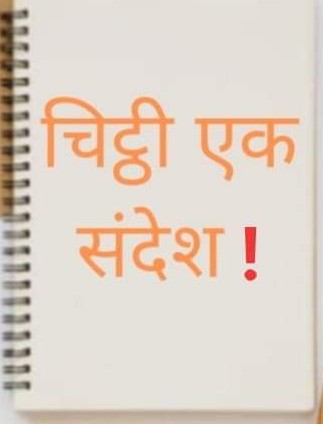 चिट्ठी एक
संदेश❗